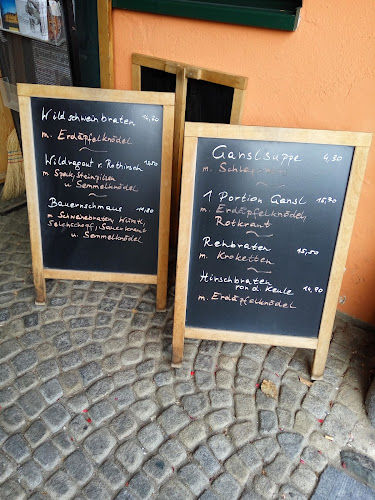 Wildschweinbraten
m. Erdäpfelknödel
Wildragout v. Rothirsch
m. Speck, Steinpilzen
u. Semmelknödel
Bauernschmaus 11,80
m. Schweinebraten, Würstl,
Selchschopf, Sauerkraut
u. Semmelknödel
Ganslsuppe 4,30
m.
1 Portion Gansl 15,70
m. Erdäpfelknödel,
Rotkraut
Rehbraten 15,50
m. Kroketten
Hirschbraten
von d. Keule 14,70
m. Erdäpfelknödel